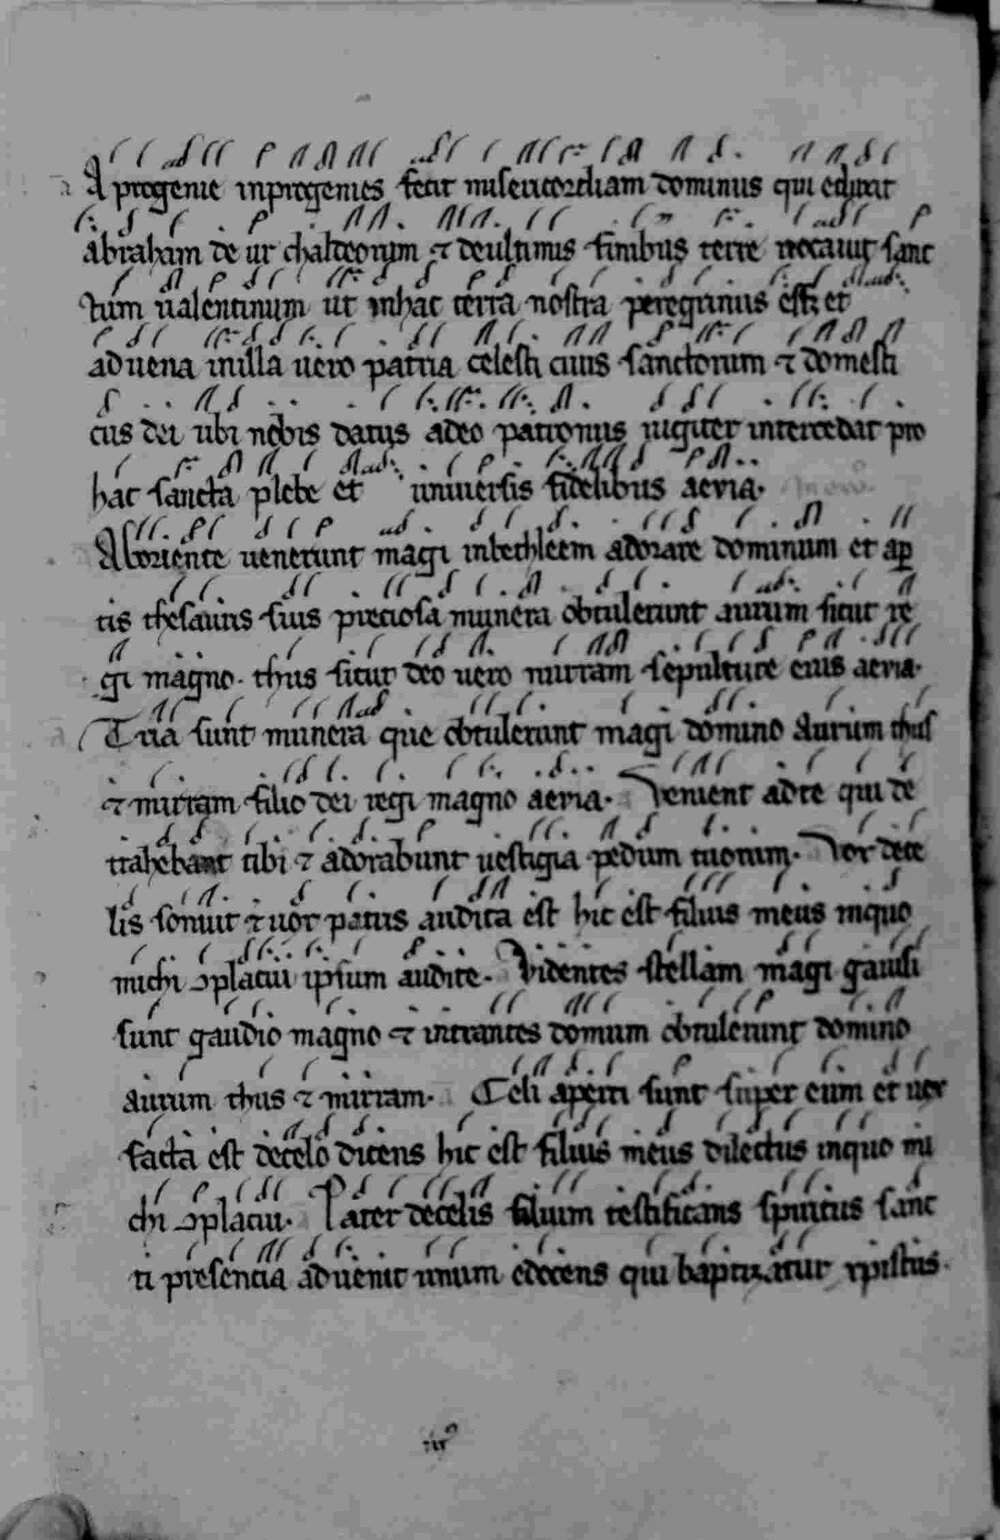 A progenie inprogenies fecit misericordiam dominus qui eduxit
abraham de ur chaldeorum ⁊ deultimis finibus terre uocauit sanc
tum ualentinum ut inhac terra nostra peregrinus esset et
aduena inilla uero patria celesti ciuis sanctorum ⁊ domesti
cus dei ubi nobis datus adeo patronus iugiter intercedat pro
hac sancta plebe et uniuersis fidelibus aeuia.
Aboriente uenerunt magi inbethleem adorare dominum et ap
tis thesauris suis preciosa munera obtulerunt aurum sicut re
gi magno. thus sicut deo uero mirram sepulture eius aeuia.
Tria sunt munera que obtulerunt magi domino aurum thus
⁊ mirram filio dei regi magno aeuia. Venient adte qui de
trahebant tibi ⁊ adorabunt uestigia pedum tuorum. Vox dece
lis sonuit ⁊ uox patris audita est hic est filius meus inquo
michi ↄplacui ipsum audite. Videntes stellam magi gauisi
sunt gaudio magno ⁊ intrantes domum obtulerunt domino
aurum thus ⁊ mirram. Celi aperti sunt super eum et uox
facta est decelo dicens hic est filius meus dilectus inquo mi
chi ↄplacui. Pater decelis filium testificans spiritus sanc
ti presencia aduenit unum edocens qui baptizatur xpistus.